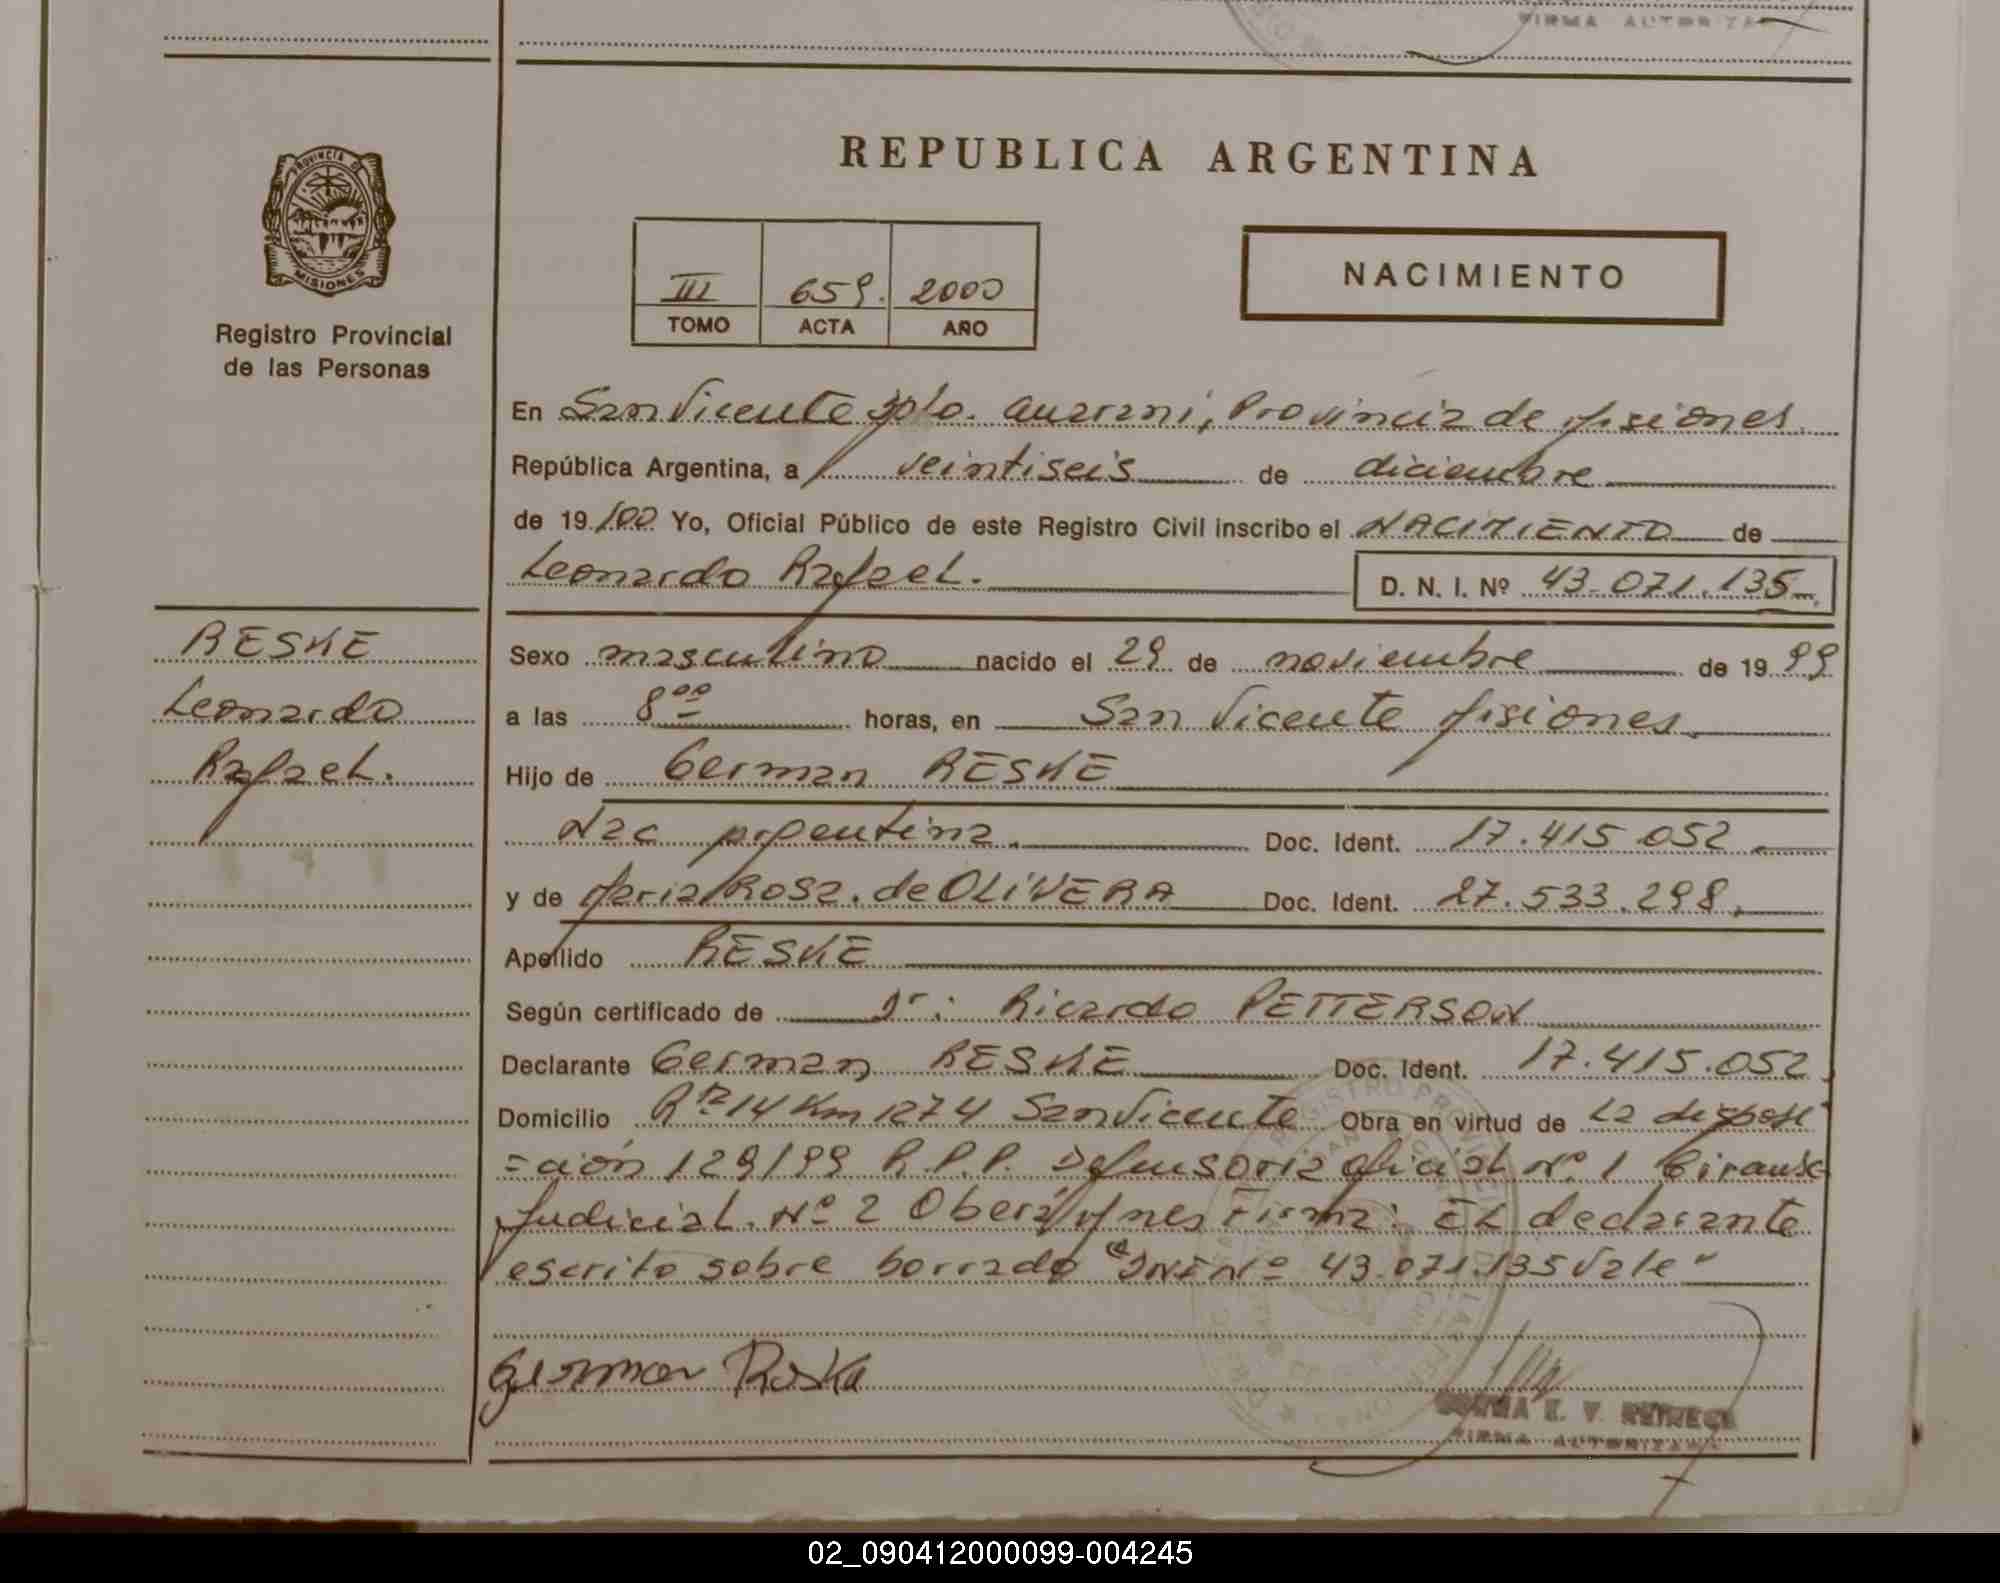 FIRMA AUTORIZA
REPUBLICA ARGENTINA
PROVINCIA DE
MISIONES
Registro Provincial
de las Personas
III 659. 2000
TOMO ACTA AÑO
NACIMIENTO
En San Vicente Dpto. Guarani, Provincia de Misiones
República Argentina, a veintiseis de diciembre
de 19/00 Yo, Oficial Público de este Registro Civil inscribo el NACIMIENTO de
Leonardo Rafael.
D. N. I. Nº 43.071.135
RESKE
Leonardo
Rafael.
Sexo masculino nacido el 29 de noviembre de 1999
a las 8 00 horas, en San Vicente Misiones
Hijo de German RESKE
Nac Argentina. Doc. Ident. 17.415.052
y de Maria Rosa. de OLIVERA Doc. Ident. 27.533.298
Apellido RESKE
Según certificado de Dr: Ricardo PETTERSON
Declarante German RESKE Doc. Ident. 17.415.052
Domicilio Rta 14 Km 1274 San Vicente Obra en virtud de La disposi
=ción 129/99 R.P.P. Defensoria oficial Nº 1 Circunsc
Judicial. Nº 2 Oberá Mnes Firma: EL declarante
escrito sobre borrado "DNI Nº 43.071.135 Vale"
German Reske
NORMA E. V.
FIRMA AUTORIZADA
02_090412000099-004245